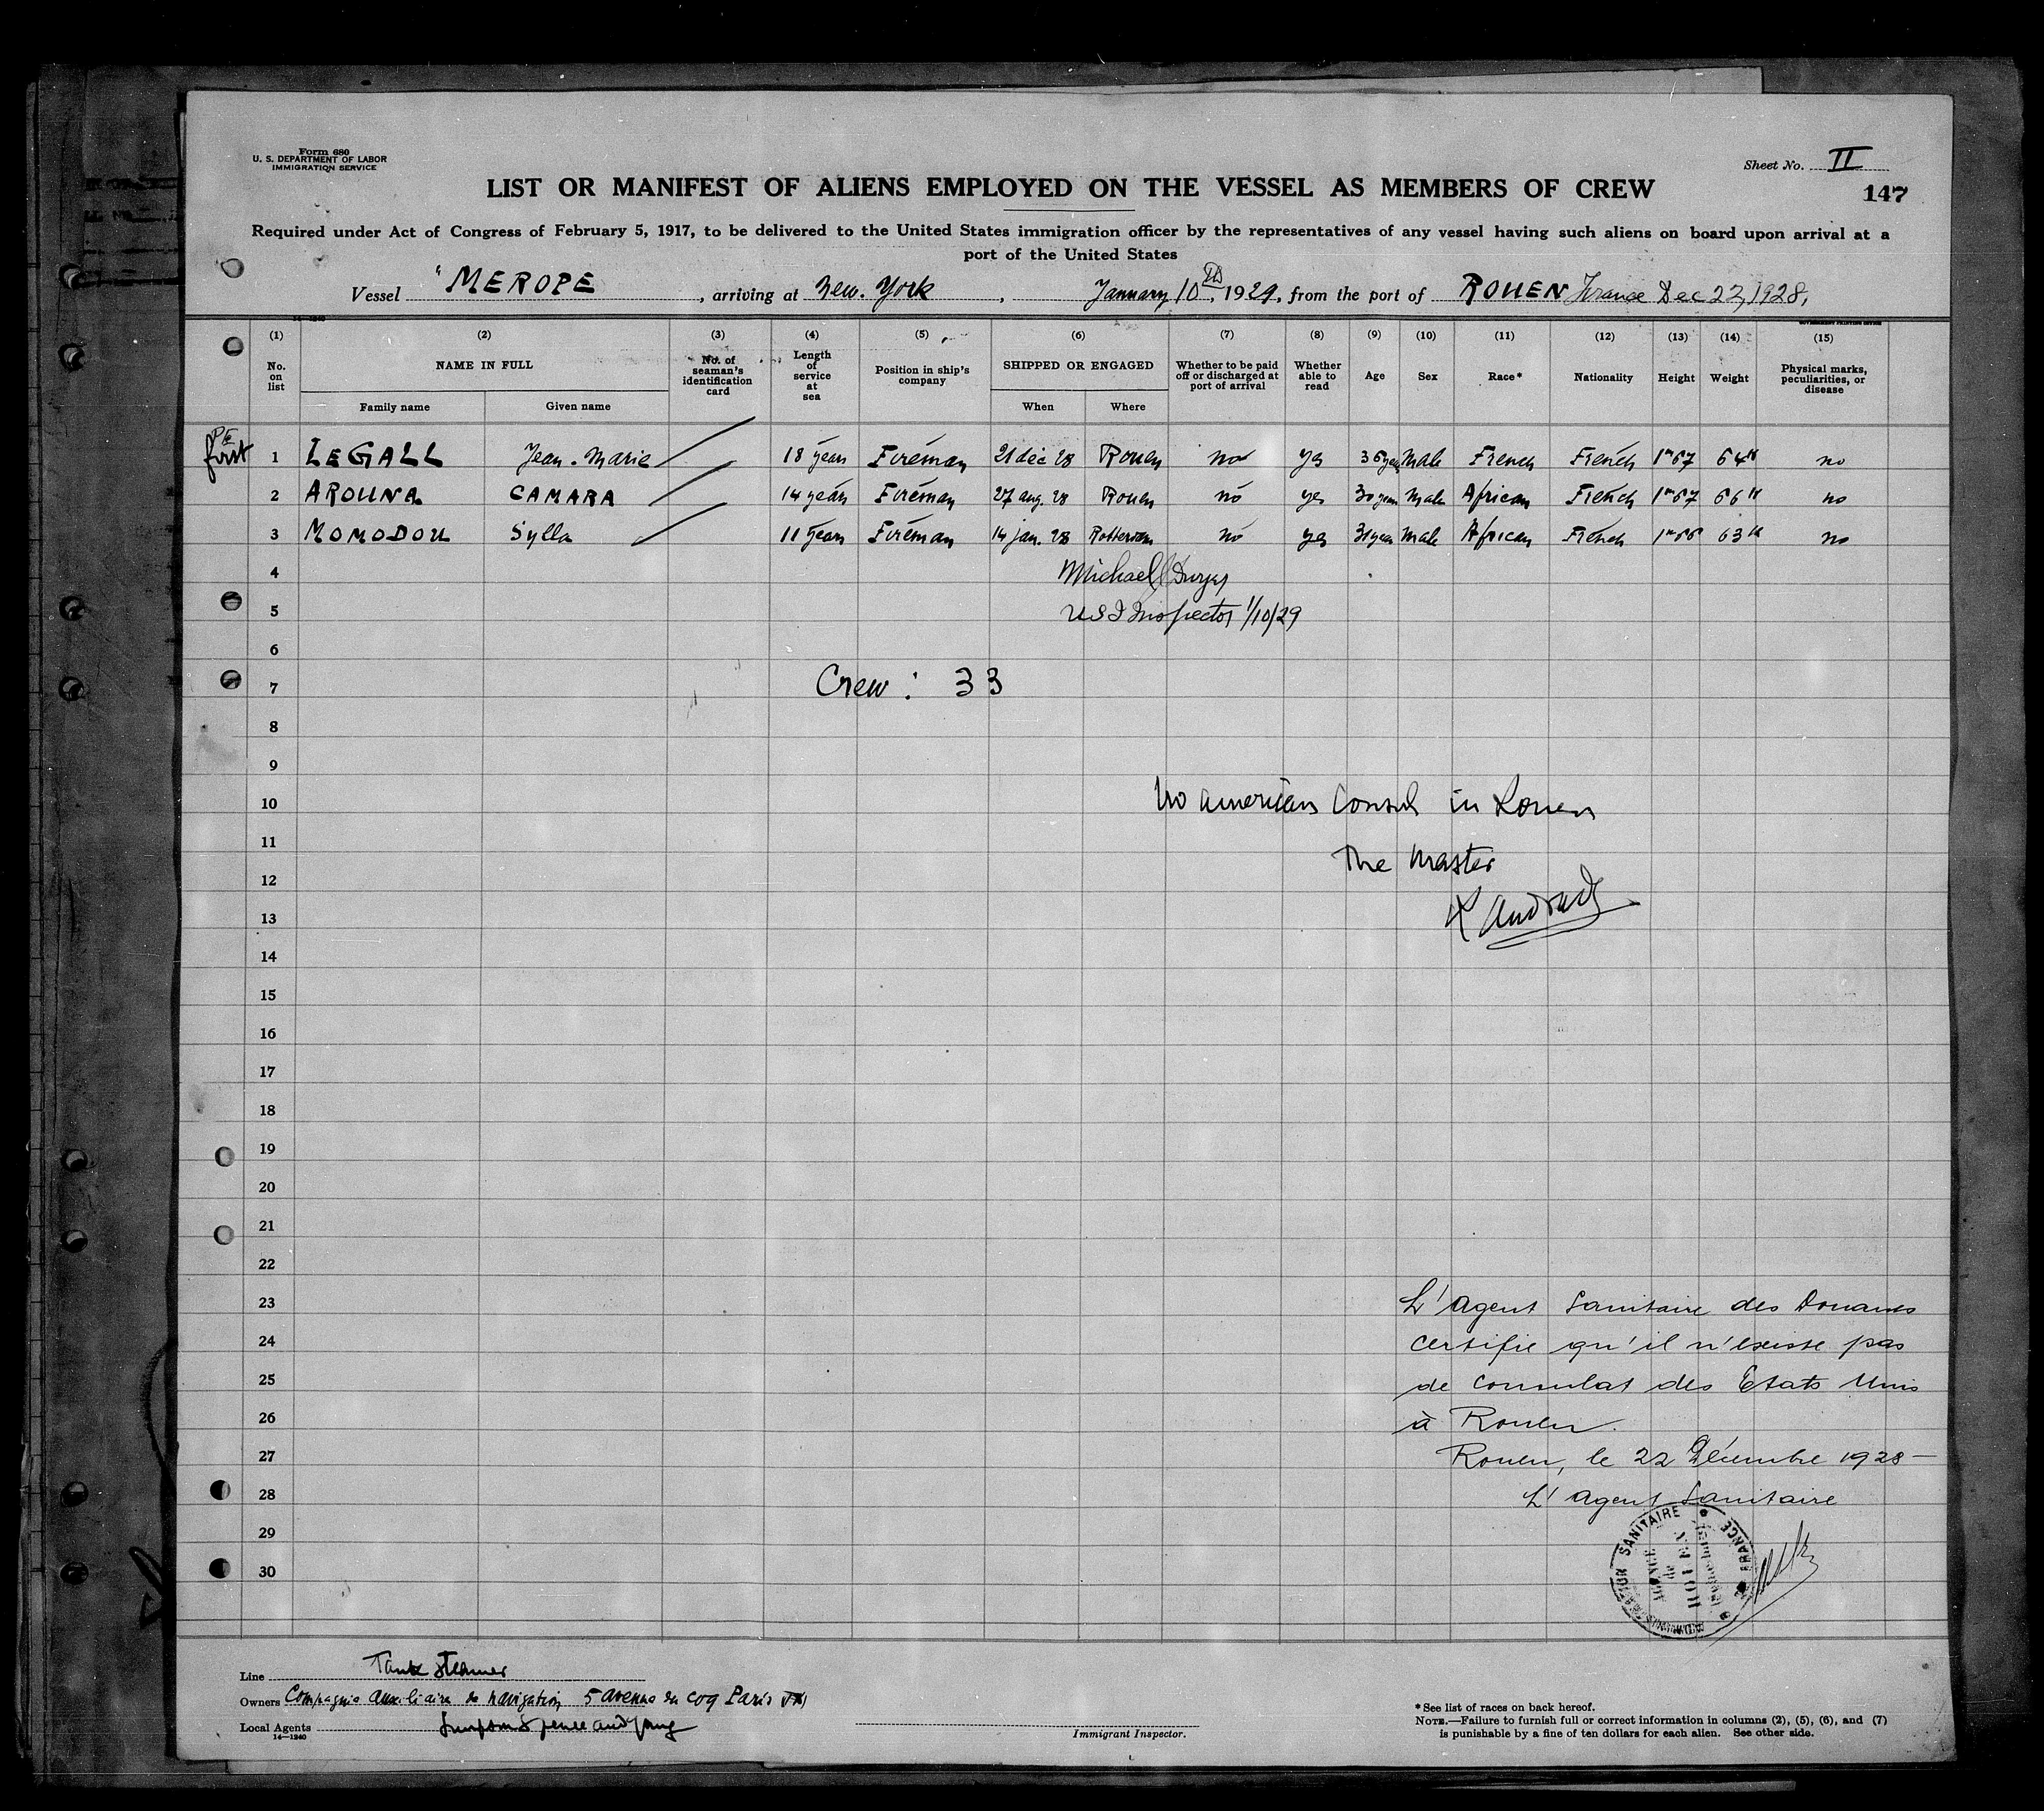 Form 680
U. S. DEPARTMENT OF LABOR
IMMIGRATION SERVICE
Sheet No. II
147
LIST OR MANIFEST OF ALIENS EMPLOYED ON THE VESSEL AS MEMBERS OF CREW
Required under Act of Congress of February 5, 1917, to be delivered to the United States immigration officer by the representatives of any vessel having such aliens on board upon arrival at a
port of the United States
Vessel "MEROPE, arriving at New. York, January 10th, 1929, from the port of ROUEN France Dec 22, 1928,
14—1240
GOVERNMENT PRINTING OFFICE
(1) (2) (3) (4) (5) (6) (7) (8) (9) (10) (11) (12) (13) (14) (15)
No. on list
NAME IN FULL
Family name
Given name
No. of seaman's identification card
Length of service at sea
Position in ship's company
SHIPPED OR ENGAGED
When
Where
Whether to be paid off or discharged at port of arrival
Whether able to read
Age
Sex
Race*
Nationality
Height
Weight
Physical marks, peculiarities, or disease
first 1 LEGALL Jean-Marie 18 years Fireman 21 déc 28 Rouen no yes 36 years Male French French 1m67 64K no
2 AROUNA CAMARA 14 years Fireman 27 aug. 28 Rouen no yes 30 years Male African French 1m67 66K no
3 MOMODOU Sylla 11 years Fireman 14 jan. 28 Rotterdam no yes 31 years Male African French 1m66 63K no
4 Michael J Dwyer
5 USI Inspector 1/10/29
6
7 Crew : 33
8
9
10 No american Consul in Rouen
11 The Master
12
13
14
15
16
17
18
19
20
21
22
23 L'agent Sanitaire des Douanes
24 certifie qu'il n'existe pas
25 de consulat des Etats Unis
26 à Rouen.
27 Rouen, le 22 Décembre 1928 —
28 L'agent Sanitaire
29
30
SANITAIRE
FRANCE
AGENCE
de
ROUEN
Line Tank Steamer
Owners Compagnie auxiliaire de navigation, 5 avenue du coq Paris
Local Agents Simpson Spence and Young
14—1240
Immigrant Inspector.
*See list of races on back hereof.
NOTE.—Failure to furnish full or correct information in columns (2), (5), (6), and (7)
is punishable by a fine of ten dollars for each alien. See other side.